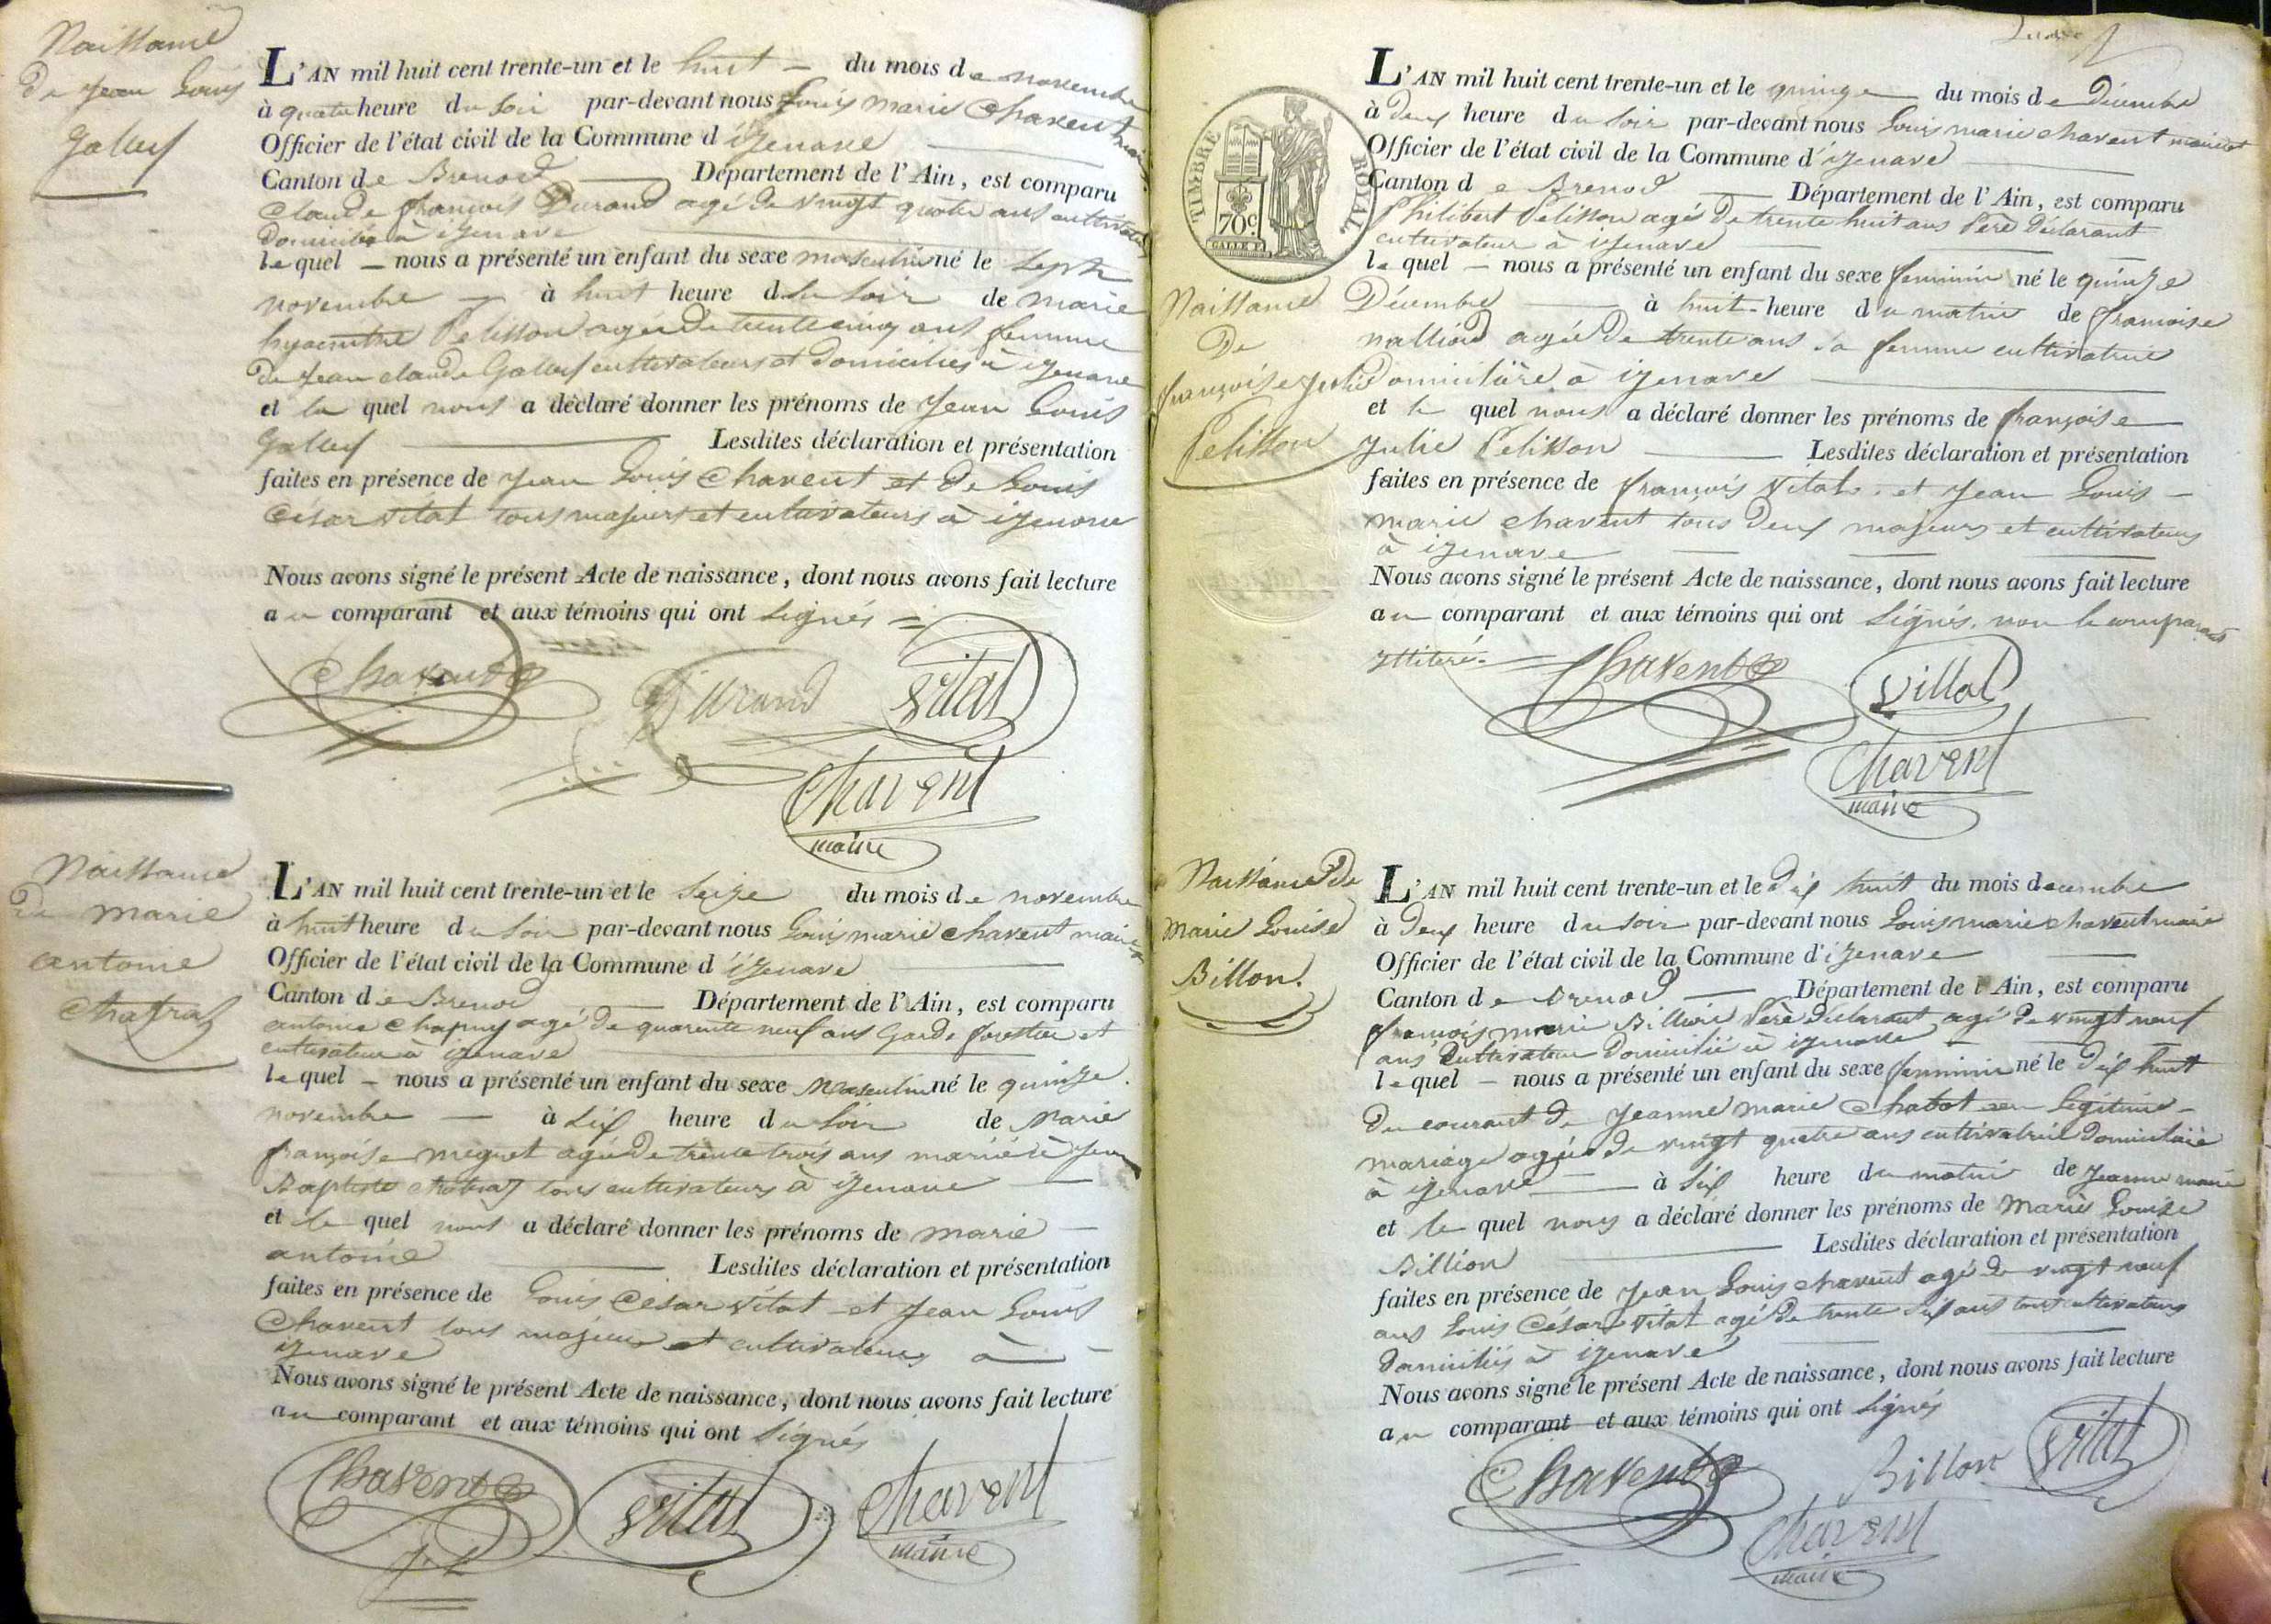 Naissance
de Jean Louis
Galluf
L'AN mil huit cent trente-un et le huit du mois de novembre
à quatre heure du soir par-devant nous Louis Marie Chavent maire
Officier de l'état civil de la Commune d'izenave
Canton de Brenod Département de l'Ain, est comparu
Claude françois Durand agé de vingt quatre ans cultivateur
domicilié à izenave
lequel nous a présenté un enfant du sexe masculin né le sept
novembre à huit heure du soir de marie
hyacinthe Pelisson agée de trente cinq ans femme
de Jean claude Galluf cultivateurs et domiciliés à izenave
et le quel nous a déclaré donner les prénoms de Jean Louis
Galluf Lesdites déclaration et présentation
faites en présence de Jean Louis Chavent et de Louis
César Vital tous majeurs et cultivateurs à izenave
Nous avons signé le présent Acte de naissance, dont nous avons fait lecture
au comparant et aux témoins qui ont signés
Chavent Durand Vital
Chavent
maire
Naissance
de marie
antoine
Chatraz
L'AN mil huit cent trente-un et le seize du mois de novembre
à huit heure du soir par-devant nous Louis marie chavent maire
Officier de l'état civil de la Commune d'izenave
Canton de Brenod Département de l'Ain, est comparu
antoine Chapuy agé de quarente neuf ans Garde forestier et
cultivateur à izenave
lequel nous a présenté un enfant du sexe Masculin né le quinze
novembre à six heure du soir de Marie
françoise meynet agée de trente trois ans mariée à Jean
Baptiste chatraz tous cultivateurs à izenave
et le quel nous a déclaré donner les prénoms de marie
antoine Lesdites déclaration et présentation
faites en présence de Louis César Vital et Jean Louis
Chavent tous majeurs et cultivateurs à
izenave
Nous avons signé le présent Acte de naissance, dont nous avons fait lecture
au comparant et aux témoins qui ont signés
Chavent Vital Chavent
maire
TIMBRE ROYAL
70c
L'AN mil huit cent trente-un et le quinze du mois de Décembre
à deux heure du soir par-devant nous Louis marie chavent maire et
Officier de l'état civil de la Commune d'izenave
Canton de Brenod Département de l'Ain, est comparu
Philibert Pelisson agé de trente huit ans Père déclarant
cultivateur à izenave
lequel nous a présenté un enfant du sexe feminin né le quinze
Décembre à huit heure du matin de françoise
nalliod agée de trente ans sa femme cultivatrice
Domiciliére à izenave
et le quel nous a déclaré donner les prénoms de françoise
Julie Pelisson Lesdites déclaration et présentation
faites en présence de françois Vital et Jean Louis
marie chavent tous deux majeurs et cultivateurs
à izenave
Nous avons signé le présent Acte de naissance, dont nous avons fait lecture
au comparant et aux témoins qui ont signés, non le comparant
illitéré.
Chavent Villal
Chavent
maire
Naissance
De
françoise Julie
Pelisson
Naissance de
Marie Louise
Billon.
L'AN mil huit cent trente-un et le dix huit du mois decembre
à deux heure du soir par-devant nous Louis marie chavent maire
Officier de l'état civil de la Commune d'izenave
Canton de Brenod Département de l'Ain, est comparu
françois marie Billion Père déclarant agé de vingt neuf
ans Cultivateur domicilié à izenave
lequel nous a présenté un enfant du sexe feminin né le dix huit
du courant de Jeanne marie Chabot en legitime
mariage agée de vingt quatre ans cultivatrice domiciliée
à izenave à six heure du matin de Jeanne marie
et le quel nous a déclaré donner les prénoms de Marie Louise
Billion Lesdites déclaration et présentation
faites en présence de Jean Louis chavent agé de vingt neuf
ans Louis César Vital agé de trente six ans tous cultivateurs
domiciliés à izenave
Nous avons signé le présent Acte de naissance, dont nous avons fait lecture
au comparant et aux témoins qui ont signés
Chavent Billon Vital
Chavent
maire